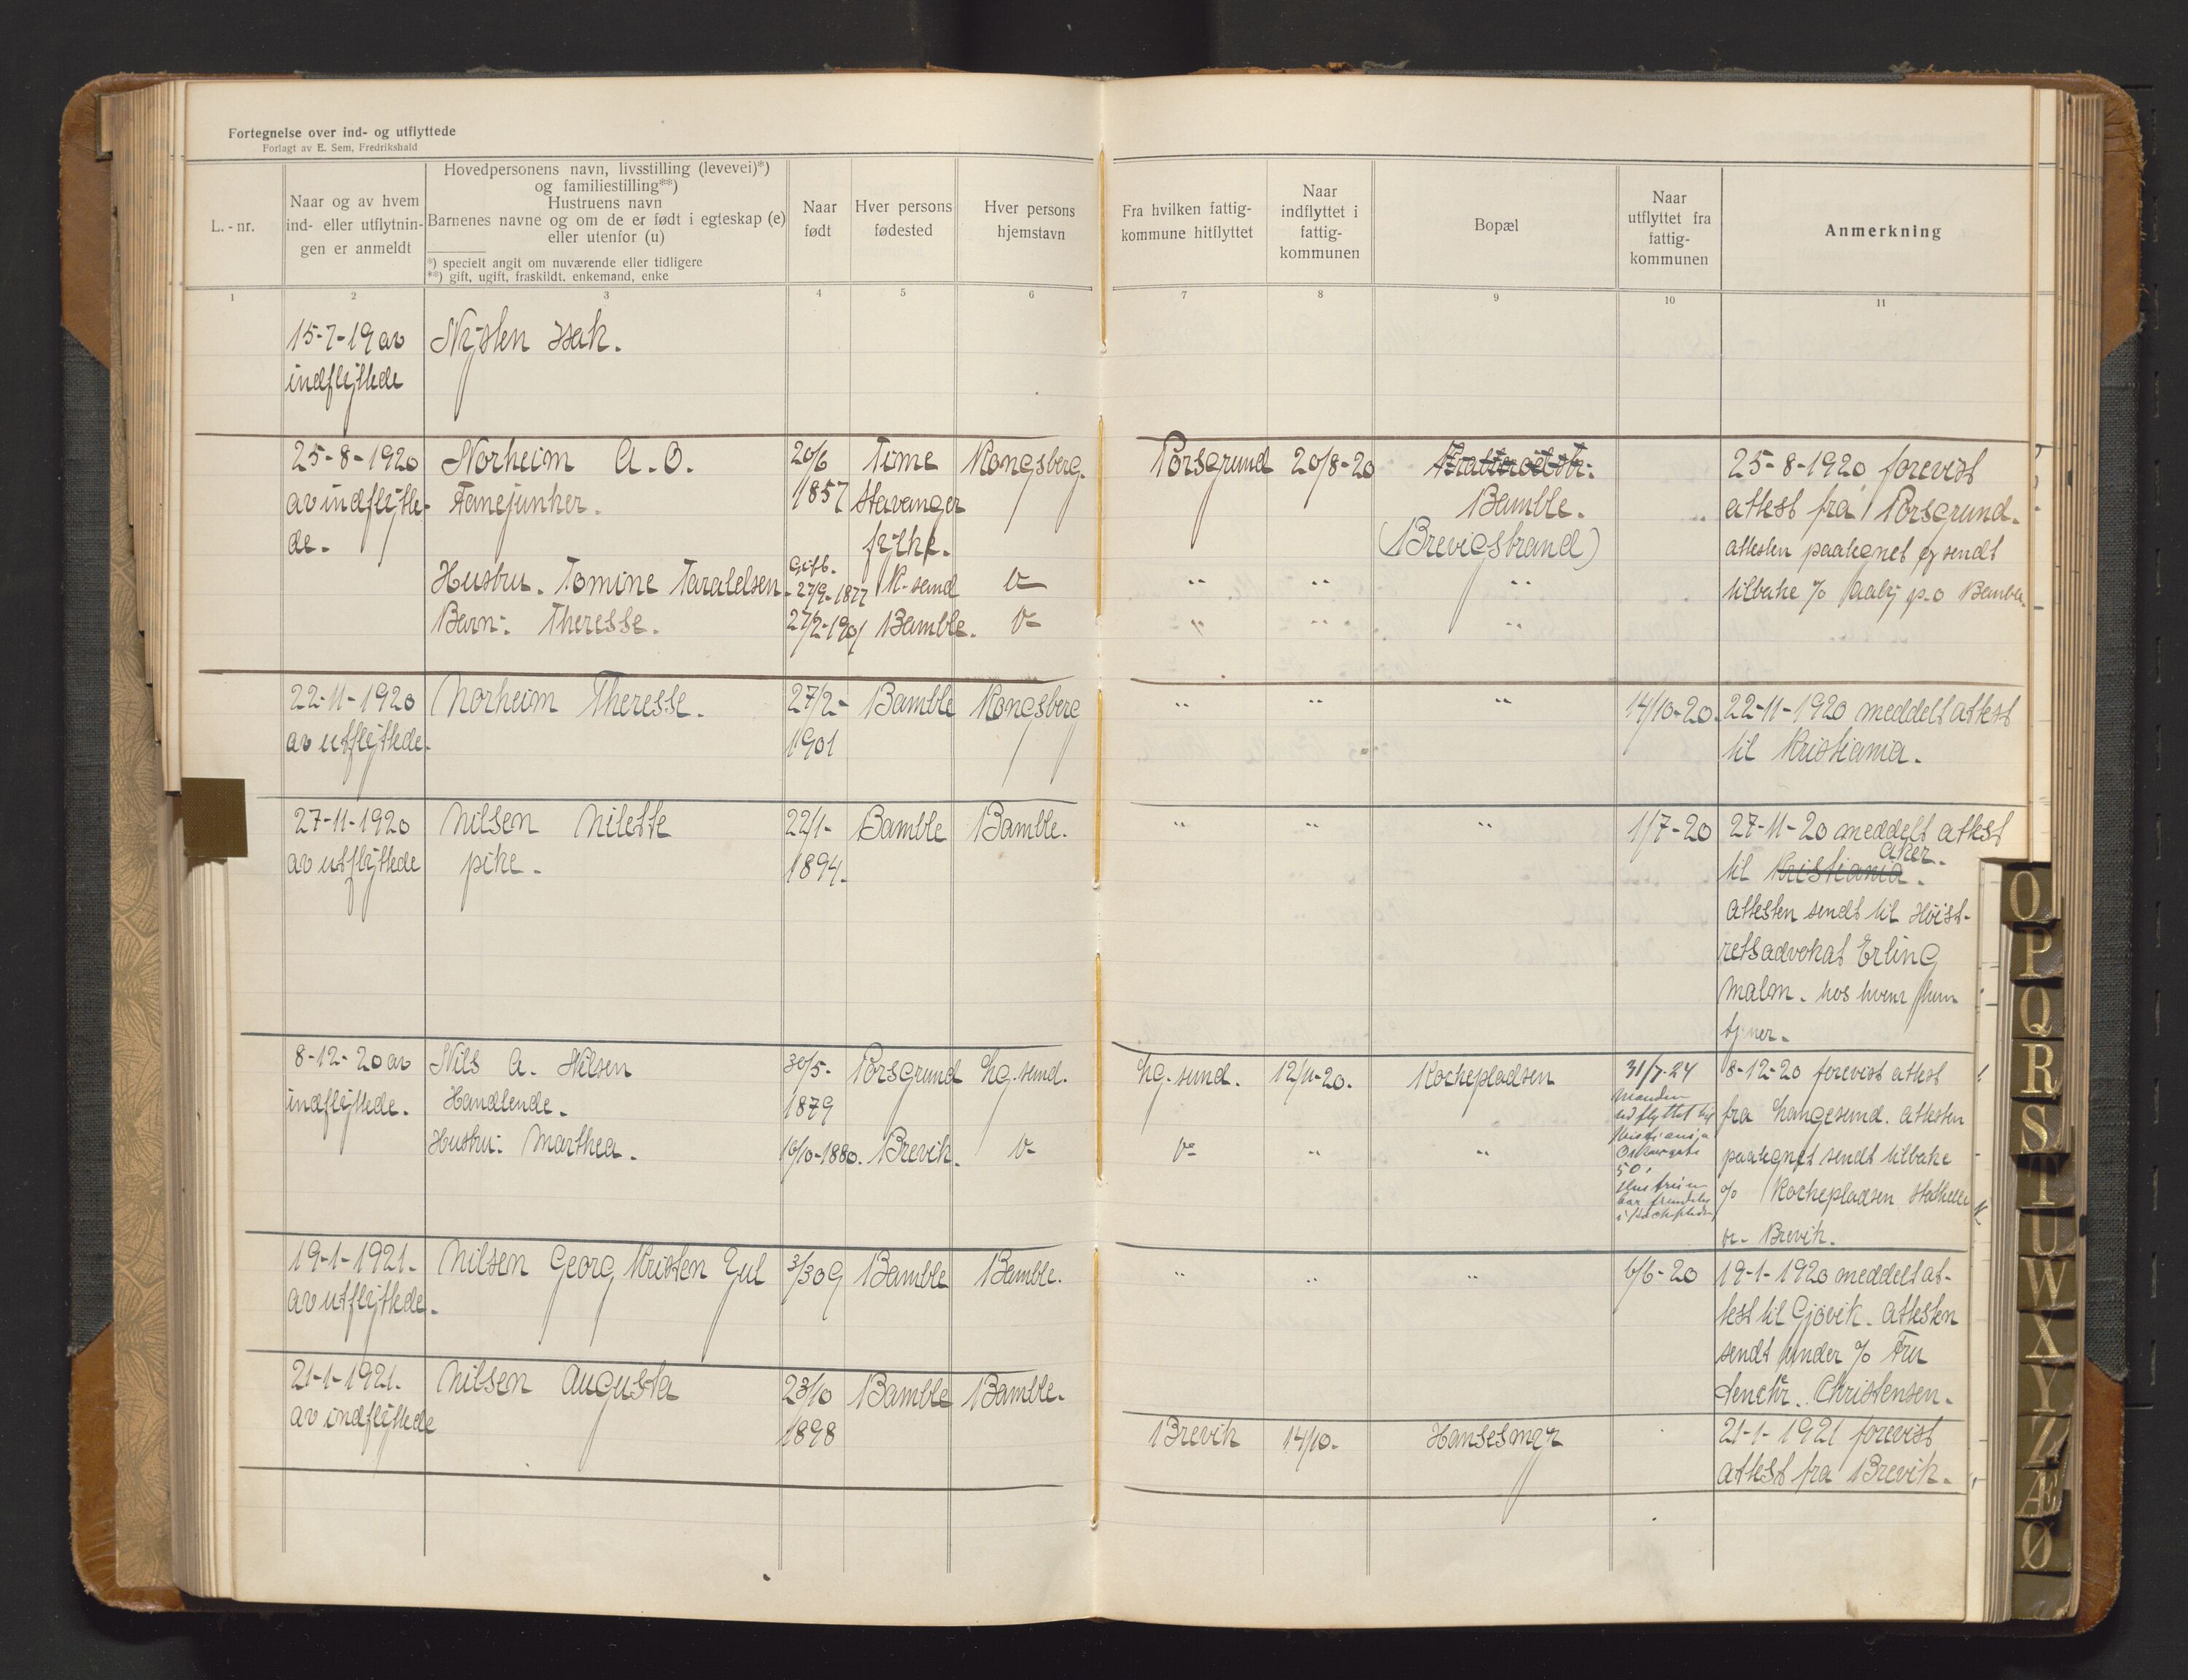 Fortegnelse over ind- og utflyttede
Forlagt av E. Sem, Fredrikshald
L.-nr.
Naar og av hvem
ind- eller utflytnin-
gen er anmeldt
Hovedpersonens navn, livsstilling (levevei)*)
og familiestilling**)
Hustruens navn
Barnenes navne og om de er født i egteskap (e)
eller utenfor (u)
*) specielt angit om nuværende eller tidligere
**) gift, ugift, fraskildt, enkemand, enke
Naar
født
Hver persons
fødested
Hver persons
hjemstavn
Fra hvilken fattig-
kommune hitflyttet
Naar
indflyttet i
fattig-
kommunen
Bopæl
Naar
utflyttet fra
fattig-
kommunen
Anmerkning
1 2 3 4 5 6 7 8 9 10 11
15-7-19 av Nysten Isak.
indflyttede
25-8-1920 Norheim A. O. 20/6 Time Kongsberg. Porsgrund 20/8-20 25-8-1920 forevist
av indflytte- Fanejunker. 1857 Stavanger Bamble. attest fra Porsgrund.
de. fylke. (Brevigstrand) attesten paategnet og sendt
Gift.
Hustru. Tomine Taraldsen. 27/9-1877 K-sund do " " " tilbake % Aaby p.o Bamble.
Barn: Theresse. 27/2-1901 Bamble. do " " "
22-11-1920 Norheim Theresse. 27/2- Bamble Kongsberg " " " 14/10-20. 22-11-1920 meddelt attest
av utflyttede. 1901 til Kristiania.
27-11-1920 Nilsen Nilette 22/1- Bamble Bamble. " " " 1/7-20 27-11-20 meddelt attest
Aker.
av utflyttede pike. 1894. til Kristiania.
Attesten sendt til Høist-
retsadvokat Erling
Malm. hos hvem hun
tjener.
8-12-20 av Nils A. Nilsen 30/5- Porsgrund Lg.sund. Lg.sund. 12/11-20. Kockepladsen 31/7-24 8-12-20 forevist attest
indflyttede. Handlende. 1879 Manden utflyttet til fra Langesund. Attesten
Hustru: Marthea. 16/10-1880. Brevik. do do " " Kristiania paategnet sendt tilbake
50.
Hustruen % Kockepladsen Stathelle
i Kockepladsen
pr. Brevik.
19-1-1921. Nilsen Georg Kristen Gul 3/3 09 Bamble Bamble. " " " 6/6-20 19-1-1920 meddelt at-
av utflyttede. test til Gjøvik. Attesten
sendt under % Fru
Christensen.
21-1-1921. Nilsen Augusta 23/10 Bamble Bamble.
av indflyttede 1898 Brevik 14/10. Hansesmyr 21-1-1921 forevist
attest fra Brevik.
O
P
Q
R
S
T
U
W
X
Y
Z
Æ
Ø